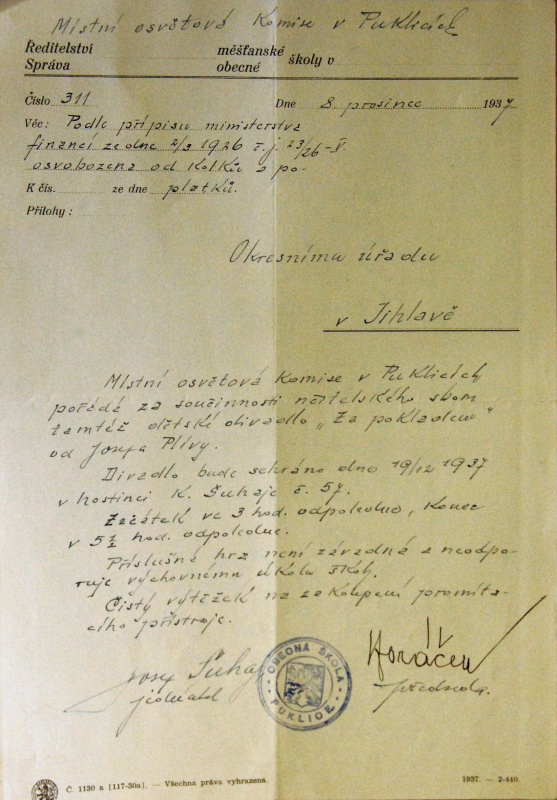 Místní osvětová Komise v Puklicích
Ředitelství měšťanské školy v
Správa obecné
Číslo 311 Dne 8 prosince 1937
Věc: Podle přípisu ministerstva
financí ze dne 2/9 1926 č.j. 23/26-V.
osvobozena od Kolků a po-
K čís. ze dne platků.
Přílohy:
Okresnímu úřadu
v Jihlavě
Místní osvětová Komise v Puklicích
pořádá za součinnosti učitelského sboru
tamtéž dětské divadlo „Za pokladem"
od Josefa Plívy.
Divadlo bude sehráno dne 19/12 1937
v hostinci K. Šuhaje č. 57.
Začátek ve 3 hod. odpoledne, Konec
v 5½ hod. odpoledne.
Příslušná hra není závadná a neodpo-
ruje výchovnému úkolu škol.
Čistý výtěžek na zakoupení promíta-
cího přístroje.
Josef Šuhaj Horáček
jednatel předseda.
OBECNÁ ŠKOLA
PUKLICE
Č. 1130 a [117-30a]. — Všechna práva vyhrazena. 1937. — 2-440.